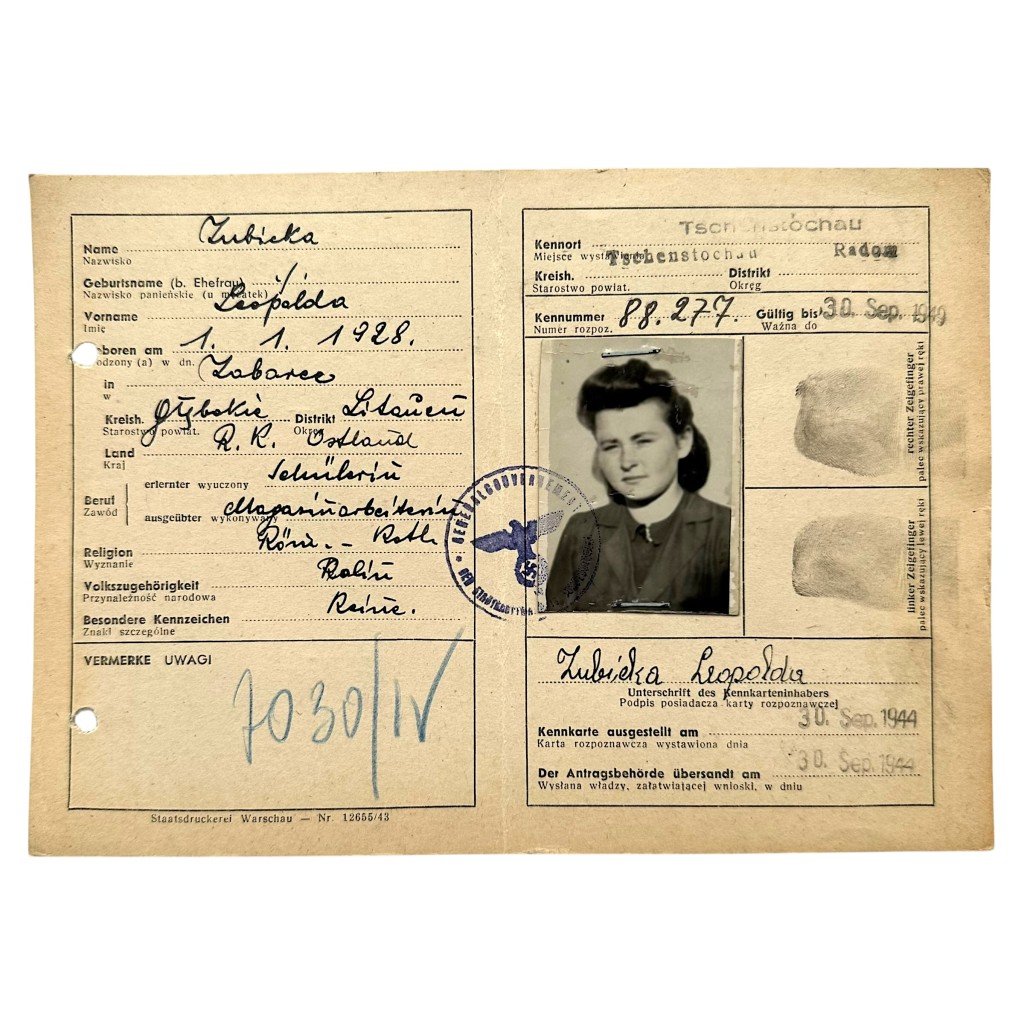 Name Zubicka
Nazwisko
Geburtsname (b. Ehefrau)
Nazwisko panieńskie (u mężatek)
Vorname Leopolda
Imię
Geboren am 1. 1. 1928.
Urodzony (a) w dn.
in Zabarce
w
Kreish. Głębokie Distrikt Litauen
Starostwo powiat. Okręg
Land R. K. Ostland
Kraj
Beruf erlernter wyuczony Schülerin
Zawód
ausgeübter wykonywany Magazinarbeiterin
Religion Röm. - Kath.
Wyznanie
Volkszugehörigkeit Polin
Przynależność narodowa
Besondere Kennzeichen Keine.
Znaki szczególne
VERMERKE UWAGI
7030/IV
Staatsdruckerei Warschau — Nr. 12655/43
Tschenstochau
Kennort
Miejsce wystawienia
Tschenstochau Radom
Kreish. Distrikt
Starostwo powiat. Okręg
Kennummer 88.277. Gültig bis 30. Sep. 1949
Numer rozpoz. Ważna do
rechter Zeigefinger
palec wskazujący prawej ręki
linker Zeigefinger
palec wskazujący lewej ręki
GENERALGOUVERNEMENT
DER STADTHAUPTMANN
Zubicka Leopolda
Unterschrift des Kennkarteninhabers
Podpis posiadacza karty rozpoznawczej
Kennkarte ausgestellt am 30. Sep. 1944
Karta rozpoznawcza wystawiona dnia
Der Antragsbehörde übersandt am 30. Sep. 1944
Wysłana władzy, załatwiającej wnioski, w dniu